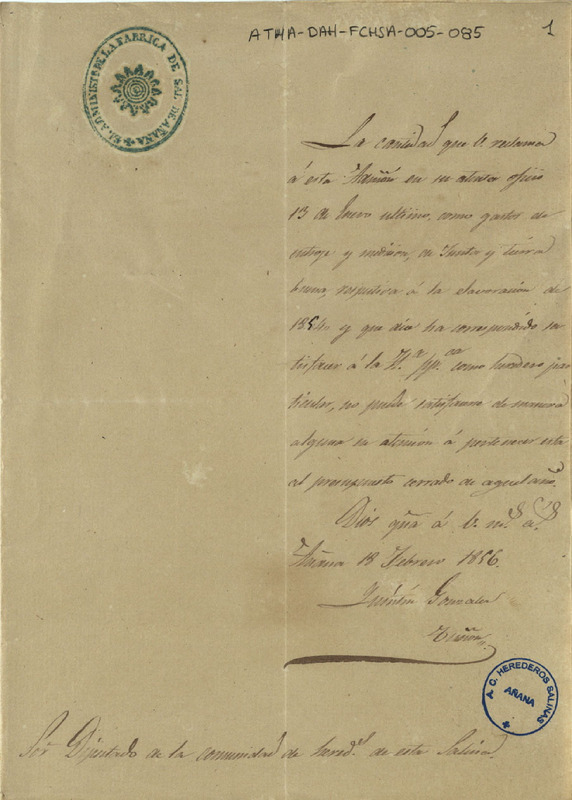 ATHA-DAH-FCHSA-005-085
1
EL ADMINISTR DE LA FABRICA DE SAL DE AÑANA
La cantidad que V. reclama
á esta Admón en su atento oficio
13 de Enero ultimo, como gastos de
entroje y medicion, de Junta y tierra
buena, respectiva á la elavoracion de
1854 y que dice ha correspondido sa
tisfacer á la H.ª pp.ca como heredero par
ticular, no puede satisfacerse de manera
alguna en atencion á pertenecer este
al presupuesto cerrado de aquel año.
Dios gũe á V. m.s a.s
Añana 13 Febrero 1856.
Quintin Gonzalez
A. C. HEREDEROS SALINAS
AÑANA
Sor Diputado de la comunidad de hered.s de esta Salina.